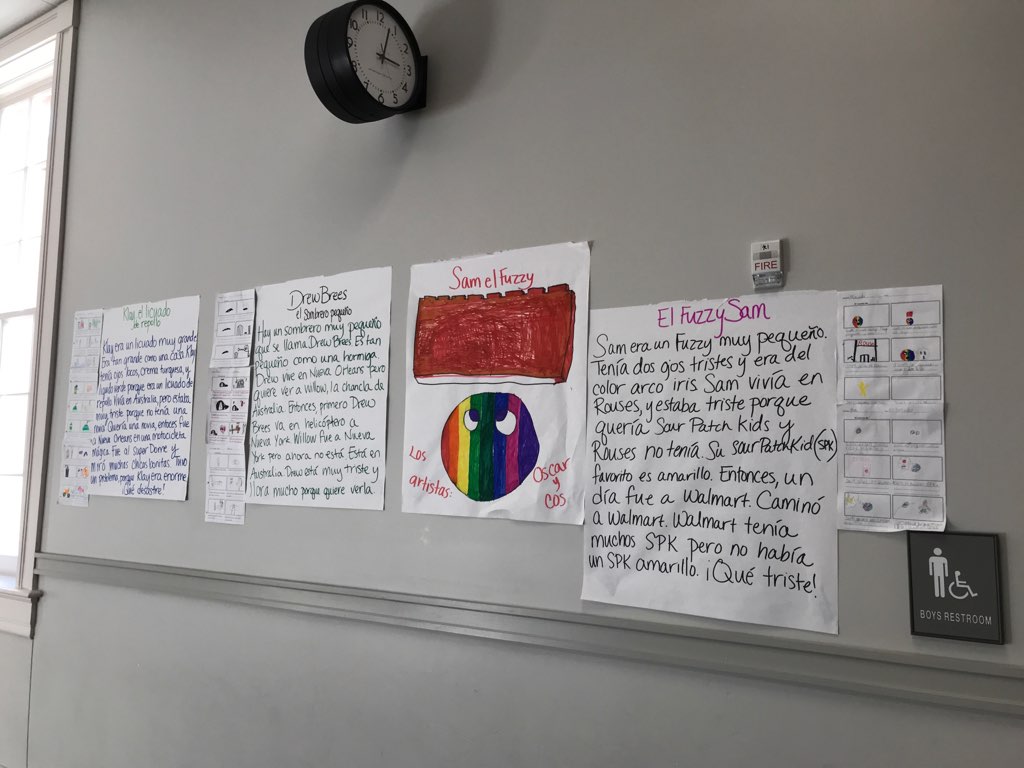 Klay, el licuado
de repollo
Klay era un licuado muy grande
Era tan grande como una casa. Klay
tenía ojos locos, crema turquesa, y
líquido verde porque era un licuado de
repollo. Vivía en Australia, pero estaba
muy triste porque no tenía una
novia. Quería una novia, entonces fue a
Nueva Orleans en una motocicleta
mágica. Fue al Super Dome y
miró muchas chicas bonitas. Tuvo
un problema, porque Klay era enorme
¡Qué desastre!
Drew Brees
el Sombrero pequeño
Hay un sombrero muy pequeño
que se llama Drew Brees. Es tan
pequeño como una hormiga.
Drew vive en Nueva Orleans pero
quiere ver a Willow, la chancla de
Australia. Entonces, primero Drew
Brees va en helicóptero a
Nueva York. Willow fue a Nueva
York pero ahora no está. Está en
Australia. Drew está muy triste y
llora mucho porque quiere verla.
Sam el Fuzzy
Los
artistas:
Oscar
y
Cos
El Fuzzy Sam
Sam era un Fuzzy muy pequeño.
Tenía dos ojos tristes y era del
color arco iris. Sam vivía en
Rouses, y estaba triste porque
quería Sour Patch Kids y
Rouses no tenía. Su Sour Patch Kid (SPK)
favorito es amarillo. Entonces, un
día fue a Walmart. Caminó
a Walmart. Walmart tenía
muchos SPK pero no había
un SPK amarillo. ¡Qué triste!
FIRE
BOYS RESTROOM